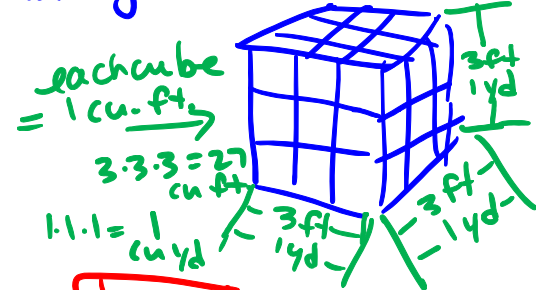 each cube
= 1 cu. ft.
3·3·3 = 27
cu ft
1·1·1 = 1
cu yd
3 ft
1 yd
3 ft
1 yd
3 ft
1 yd